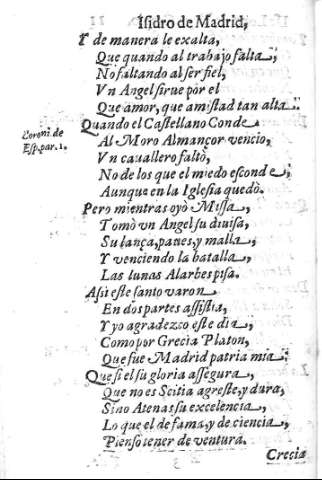 Isidro de Madrid,
Y de manera le exalta,
Que quando al trabajo falta,
No faltando al ser fiel,
Vn Angel sirue por el
Que amor, que amistad tan alta.
Coroni. de
Esp. par. 1.
Quando el Castellano Conde
Al Moro Almançor vencio,
Vn cauallero faltò,
No de los que el miedo esconde,
Aunque en la Iglesia quedò.
Pero mientras oyò Missa,
Tomò vn Angel su diuisa,
Su lança, paues, y malla,
Y venciendo la batalla,
Las lunas Alarbes pisa.
Assi este santo varon
En dos partes assistia,
Y yo agradezco este dia,
Como por Grecia Platon,
Que fue Madrid patria mia:
Que si el su gloria assegura,
Que no es Scitia agreste, y dura,
Sino Atenas su excelencia,
Lo que el de fama, y de ciencia,
Pienso tener de ventura.
Crecia